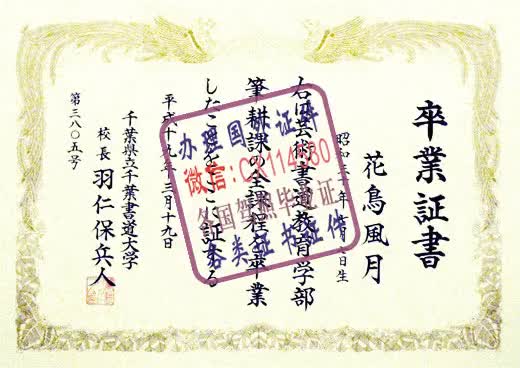 卒業証書
花鳥風月
昭和三十年
右は芸術書道教育学部
筆耕課の全課程を卒業
したことをここに証する
平成十九年三月十九日
千葉県立千葉書道大学
校長 羽仁保兵人
第三八〇五号
办理国
证料
微信:
114580
各国驾照毕业证
各类证书证件